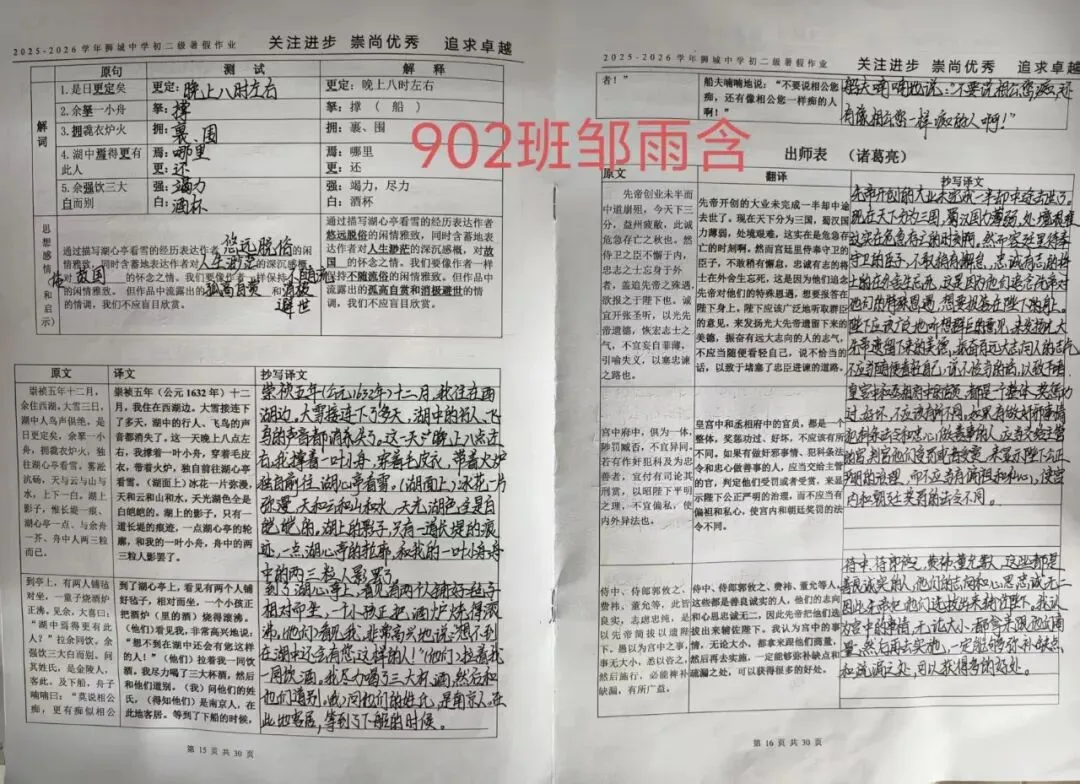 2025-2026学年狮城中学初二级暑假作业 关注进步 崇尚优秀 追求卓越
原句 测试 解释
解词
1.是日更定矣 更定:晚上八时左右 更定:晚上八时左右
2.余拏一小舟 拏:撑 拏:撑(船)
3.拥毳衣炉火 拥:裹、围 拥:裹、围
4.湖中焉得更有此人 焉:哪里 焉:哪里
更:还 更:还
5.余强饮三大白而别 强:竭力 强:竭力,尽力
白:酒杯 白:酒杯
思想感情(和启示)
通过描写湖心亭看雪的经历表达作者悠远脱俗的闲
情雅致,同时含蓄地表达作者对人生渺茫的深沉感概,
对故国的怀念之情。我们要像作者一样保持
的闲情雅致。但作品中流露出的孤高自赏和消极避世
的情调,我们不应盲目欣赏。
通过描写湖心亭看雪的经历表达作者
悠远脱俗的闲情雅致,同时含蓄地表
达作者对人生渺茫的深沉感概,对故
国的怀念之情。我们要像作者一样
保持不随流俗的闲情雅致。但作品中
流露出的孤高自赏和消极避世的情
调,我们不应盲目欣赏。
902班邹雨含
原文 译文 抄写译文
崇祯五年十二月,
余住西湖。大雪三日,
湖中人鸟声俱绝。是
日更定矣,余拏一小
舟,拥毳衣炉火,独
往湖心亭看雪。雾凇
沆砀,天与云与山与
水,上下一白。湖上
影子,惟长堤一痕、
湖心亭一点、与余舟
一芥、舟中人两三粒
而已。
崇祯五年(公元1632年)十二
月,我住在西湖边。大雪接连下
了多天,湖中的行人、飞鸟的声
音都消失了。这一天晚上八点左
右,我撑着一叶小舟,穿着毛皮
衣,带着火炉,独自前往湖心亭
看雪。(湖面上)冰花一片弥漫,
天和云和山和水,天光湖色全是
白皑皑的。湖上的影子,只有一
道长堤的痕迹,一点湖心亭的轮
廓,和我的一叶小舟,舟中的两
三粒人影罢了。
崇祯五年(公元1632年)十二月,我住在西
湖边,大雪接连下了多天,湖中的行人、飞
鸟的声音都消失了。这一天晚上八点左
右,我撑着一叶小舟,穿着毛皮衣,带着火炉
独自前往湖心亭看雪。(湖面上)冰花一片
弥漫,天和云和山和水,天光湖色全是白
皑皑的。湖上的影子,只有一道长堤的痕
迹,一点湖心亭的轮廓,和我的一叶小舟,舟
中的两三粒人影罢了
到亭上,有两人铺毡
对坐,一童子烧酒炉
正沸。见余,大喜曰:
“湖中焉得更有此
人?”拉余同饮。余
强三大白而别。问
其姓氏,是金陵人,
客此。及下船,舟子
喃喃曰:“莫说相公
痴,更有痴似相公
到了湖心亭上,看见有两个人铺
好毡子,相对而坐,一个小孩正
把酒炉(里的酒)烧得滚沸。
(他们)看见我,非常高兴地说:
“想不到在湖中还会有您这样
的人!”(他们)拉着我一同饮
酒。我尽力喝了三大杯酒,然后
和他们道别。(我)问他们的姓
氏,(得知他们)是南京人,在
此地客居。等到了下船的时候,
到了湖心亭上,看见有两个人铺好毡子
相对而坐,一个小孩正把酒炉烧得滚
沸。(他们)看见我,非常高兴地说:“想不到
在湖中还会有您这样的人!”(他们)拉着我
一同饮酒。我尽力喝了三大杯酒,然后和
他们道别。(我)问他们的姓氏,是南京人,在
此地客居,等到了下船的时候。
第15页 共30页
2025-2026学年狮城中学初二级暑假作业 关注进步 崇尚优秀 追求卓越
者!”
船夫喃喃地说:“不要说相公您
痴,还有像相公您一样痴的人
啊!”
船夫喃喃地说:“不要说相公您痴,还
有像相公您一样痴的人啊!”
出师表 (诸葛亮)
原文 翻译 抄写译文
先帝创业未半而
中道崩殂,今天下三
分,益州疲敝,此诚
危急存亡之秋也。然
侍卫之臣不懈于内,
忠志之士忘身于外
者,盖追先帝之殊遇,
欲报之于陛下也。诚
宜开张圣听,以光先
帝遗德,恢宏志士之
气,不宜妄自菲薄,
引喻失义,以塞忠谏
之路也。
先帝开创的大业未完成一半却中途
去世了。现在天下分为三国,蜀汉国
力薄弱,处境艰难,这实在是危急存
亡的时刻啊。然而宫廷里侍奉守卫的
臣子,不敢稍有懈怠,忠诚有志的将
士在外舍生忘死,这是因为他们追念
先帝对他们的特殊恩遇,想要报答在
陛下身上。陛下应该广泛地听取群臣
的意见,来发扬光大先帝遗留下来的
美德,振奋有远大志向的人的志气,
不应当随便看轻自己,说不恰当的
话,以致于堵塞了忠臣进谏的道路。
先帝开创的大业未完成一半却中途去世了。
现在天下分为三国,蜀汉国力薄弱,处境艰难
这实在危急存亡的时刻啊。然而宫廷里侍奉
守卫的臣子,不敢稍有懈怠,忠诚有志的将
士在外舍生忘死,这是因为他们追念先帝对
他们的特殊恩遇,想要报答在陛下身上。
宫中府中,俱为一体,
陟罚臧否,不宜异同。
若有作奸犯科及为忠
善者,宜付有司论其
刑赏,以昭陛下平明
之理,不宜偏私,使
内外异法也。
皇宫中和丞相府中的官员,都是一个
整体,奖惩功过、好坏,不应该有所
不同。如果有做奸邪事情、犯科条法
令和忠心做善事的人,应当交给主管
的官,判定他们受罚或者受赏,来显
示陛下公正严明的治理,而不应当有
偏袒和私心,使宫内和朝廷奖罚的法
令不同。
侍中、侍郎郭攸之、
费祎、董允等,此皆
良实,志虑忠纯,是
以先帝简拔以遗陛
下。愚以为宫中之事,
事无大小,悉以咨之,
然后施行,必能裨补
缺漏,有所广益。
侍中、侍郎郭攸之、费祎、董允等人,
这些都是善良诚实的人,他们的志向
和心思忠诚无二,因此先帝把他们选
拔出来辅佐陛下。我认为宫中的事
情,无论大小,都拿来跟他们商量,
然后再去实施,一定能够弥补缺点和
疏漏之处,可以获得很多的好处。
第16页 共30页